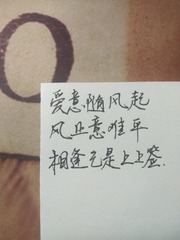 O
爱意随风起
风止意难平
相逢已是上上签.